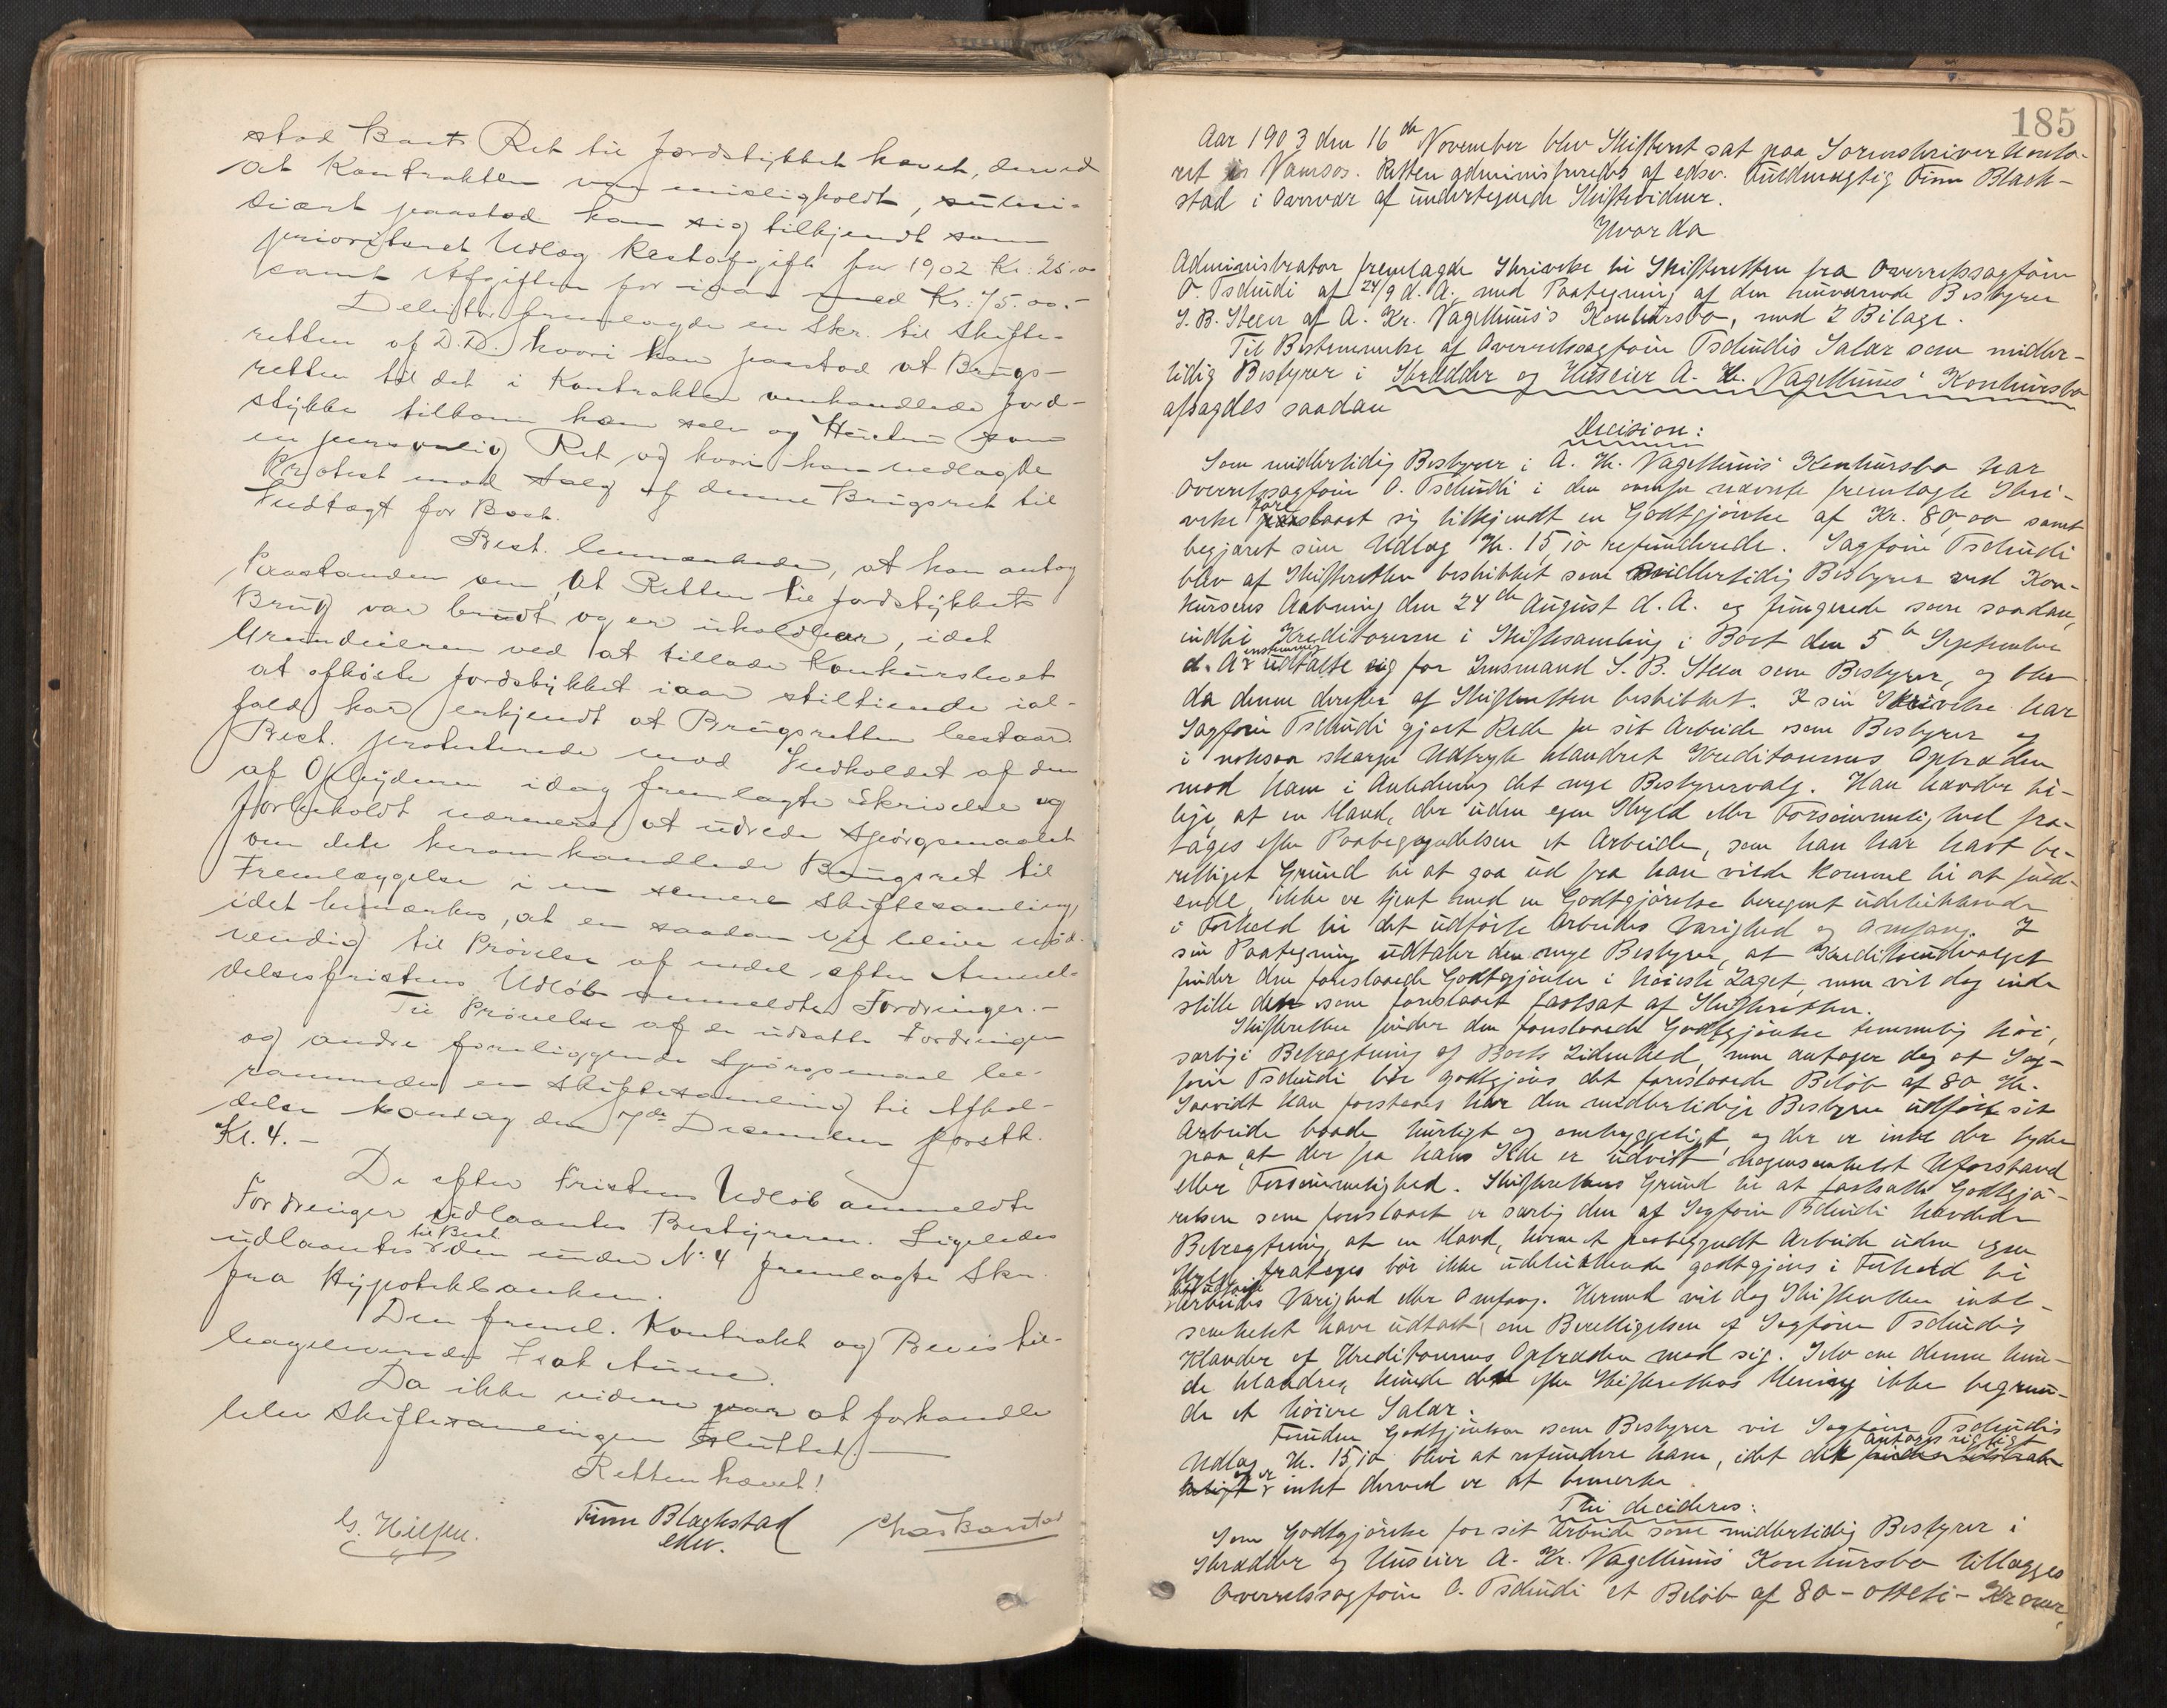 stod Boets Ret til Jordstykket hævet, derved
at Kontrakten var misligholdt, subsi-
diært paastod han sig tilkjendt som
prioriteret Udlæg Restafgift for 1902 Kr. 25.00
samt Afgiften for iaar med Kr. 75.00.-
Debitor fremlagde en Skr. til Skifte-
retten af D.D. hvori han paastod at Brugs-
retten til det i Kontrakten omhandlede Jord-
stykke tilkom ham selv og Hustru som
en personlig Ret og hvori han nedlagde
Protest mod Salg af denne Brugsret til
Indtægt for Boet.
Best. bemærkede, at han antog
Paastanden om, at Retten til Jordstykkets
Brug var brudt og er uholdbar, idet
Grundeieren ved at tillade Konkursboet
at afhøste Jordstykket iaar stiltiende ial-
fald har erkjendt at Brugsretten bestaar.
Best. protesterede mod Indholdet af den
af Opsidderen idag fremlagte Skrivelse og
forbeholdt nærmere at udrede Spørgsmaalet
om dette heromhandlede Brugsret til
Fremlæggelse i en senere Skiftesamling,
idet bemærkes, at en saadan vil blive nød-
vendig til Prøvelse af nedel efter Anmel-
delsesfristens Udløb anmeldte Fordringer.-
Til Prøvelse af de udsatte Fordringer
og andre foreliggende Spørgsmaal be-
rammedes en Skiftesamling til Afhol-
delse Mandag den 7de December førstk.
Kl. 4.-
De efter Fristens Udløb anmeldte
Fordringer udlaantes Bestyreren. Ligeledes
udlaantes til Best. den under No. 4 fremlagte Skr.
fra Hypotekbanken.
Den freml. Kontrakt og Bevis til-
bageleveredes Isak Aune.
Da ikke videre var at forhandle
blev Skiftesamlingen sluttet.
Retten hævet!
Finn Blackstad
edsv.
185
Aar 1903 den 16de November blev Skifteret sat paa Sorenskriverkonto-
ret i Namsos. Retten administreredes af edsv. Fuldmægtig Finn Black-
stad i Overvær af undertegnede Skiftevidner.
Hvorda
Administrator fremlagde Skrivelse til Skifteretten fra Overretssagfører
O. Tschudi af 24/9 d. A. med Paategning af den nuværende Bestyrer
S. B. Steen af A. Kr. Vagthuus's Konkursbo, med 2 Bilage.
Til Bestemmelse af Overretssagfører Tschudis Salær som midler-
tidig Bestyrer i Skrædder og Huseier A. Kr. Vagthuus' Konkursbo
afsagdes saadan
Decision:
Som midlertidig Bestyrer i A. Kr. Vagthuus' Konkursbo har
Overretssagfører O. Tschudi i den ovenfor nævnte fremlagte Skri-
velse foreslaaet sig tilkjendt en Godtgjørelse af Kr. 80,00 samt
begjæret sine Udlæg Kr. 15,10 refunderede. Sagfører Tschudi
blev af Skifteretten beskikket som midlertidig Bestyrer ved Kon-
kursens Aabning den 24de August d. A. og fungerede som saadan,
indtil Kreditorerne i Skiftesamling i Boet den 5te September
d. A. enstemmig udtalte sig for Lensmand S. B. Steen som Bestyrer, og blev
da denne derefter af Skifteretten beskikket. I sin Skrivelse har
Sagfører Tschudi gjort Rede for sit Arbeide som Bestyrer og
i noksaa skarpe Udtryk klandret Kreditorernes Optræden
mod ham i Anledning det nye Bestyrervalg. Han hævder til-
lige, at en Mand, der uden egen Skyld eller Forsømmelighed fra-
tages efter Paabegyndelsen et Arbeide, som han har havt be-
rettiget Grund til at gaa ud fra han vilde komme til at fuld-
ende, ikke er tjent med en Godtgjørelse beregnet udelukkende
i Forhold til det udførte Arbeides Varighed og Omfang. I
sin Paategning udtaler den nye Bestyrer, at Kreditorudvalget
finder den foreslaaede Godtgjørelse i høieste Laget, men vil dog inde
stille den som foreslaaet fastsat af Skifteretten.
Skifteretten finder den foreslaaede Godtgjørelse temmelig høi,
særlig i Betragtning af Boets Lidenhed, men antager dog at Sag-
fører Tschudi bør godtgjøres det foreslaaede Beløb af 80 Kr.
Saavidt kan forstaaes har den midlertidige Bestyrer udført sit
Arbeide baade hurtigt og omhyggeligt, og der er intet der tyder
paa, at der fra hans Side er udvist nogensomhelst Uforstand
eller Forsømmelighed. Skifterettens Grund til at fastsætte Godtgjø-
relsen som foreslaaet er særlig den af Sagfører Tschudi hævdede
Betragtning, at en Mand, hvem et paabegyndt Arbeide uden egen
Skyld fratages bør ikke udelukkende godtgjøres i Forhold til
det udførte Arbeides Varighed eller Omfang. Hermed vil dog Skifteretten intet-
somhelst have udtalt om Berettigelsen af Sagfører Tschudis
Klander af Kreditorernes Optræden mod sig. Selv om denne kun-
de klandres, kunde det efter Skifterettens Mening ikke begrun-
de et høiere Salær.
Foruden Godtgjørelsen som Bestyrer vil Sagfører Tschudis
Udlæg Kr. 15,10 blive at refundere ham, idet det antages rigtigt
og er intet derved er at bemerke.
Thi decideres:
Som Godtgjørelse for sit Arbeide som midlertidig Bestyrer i
Skrædder og Huseier A. Kr. Vagthuus' Konkursbo tillægges
Overretssagfører O. Tschudi et Beløb af 80 - otteti - Kroner,